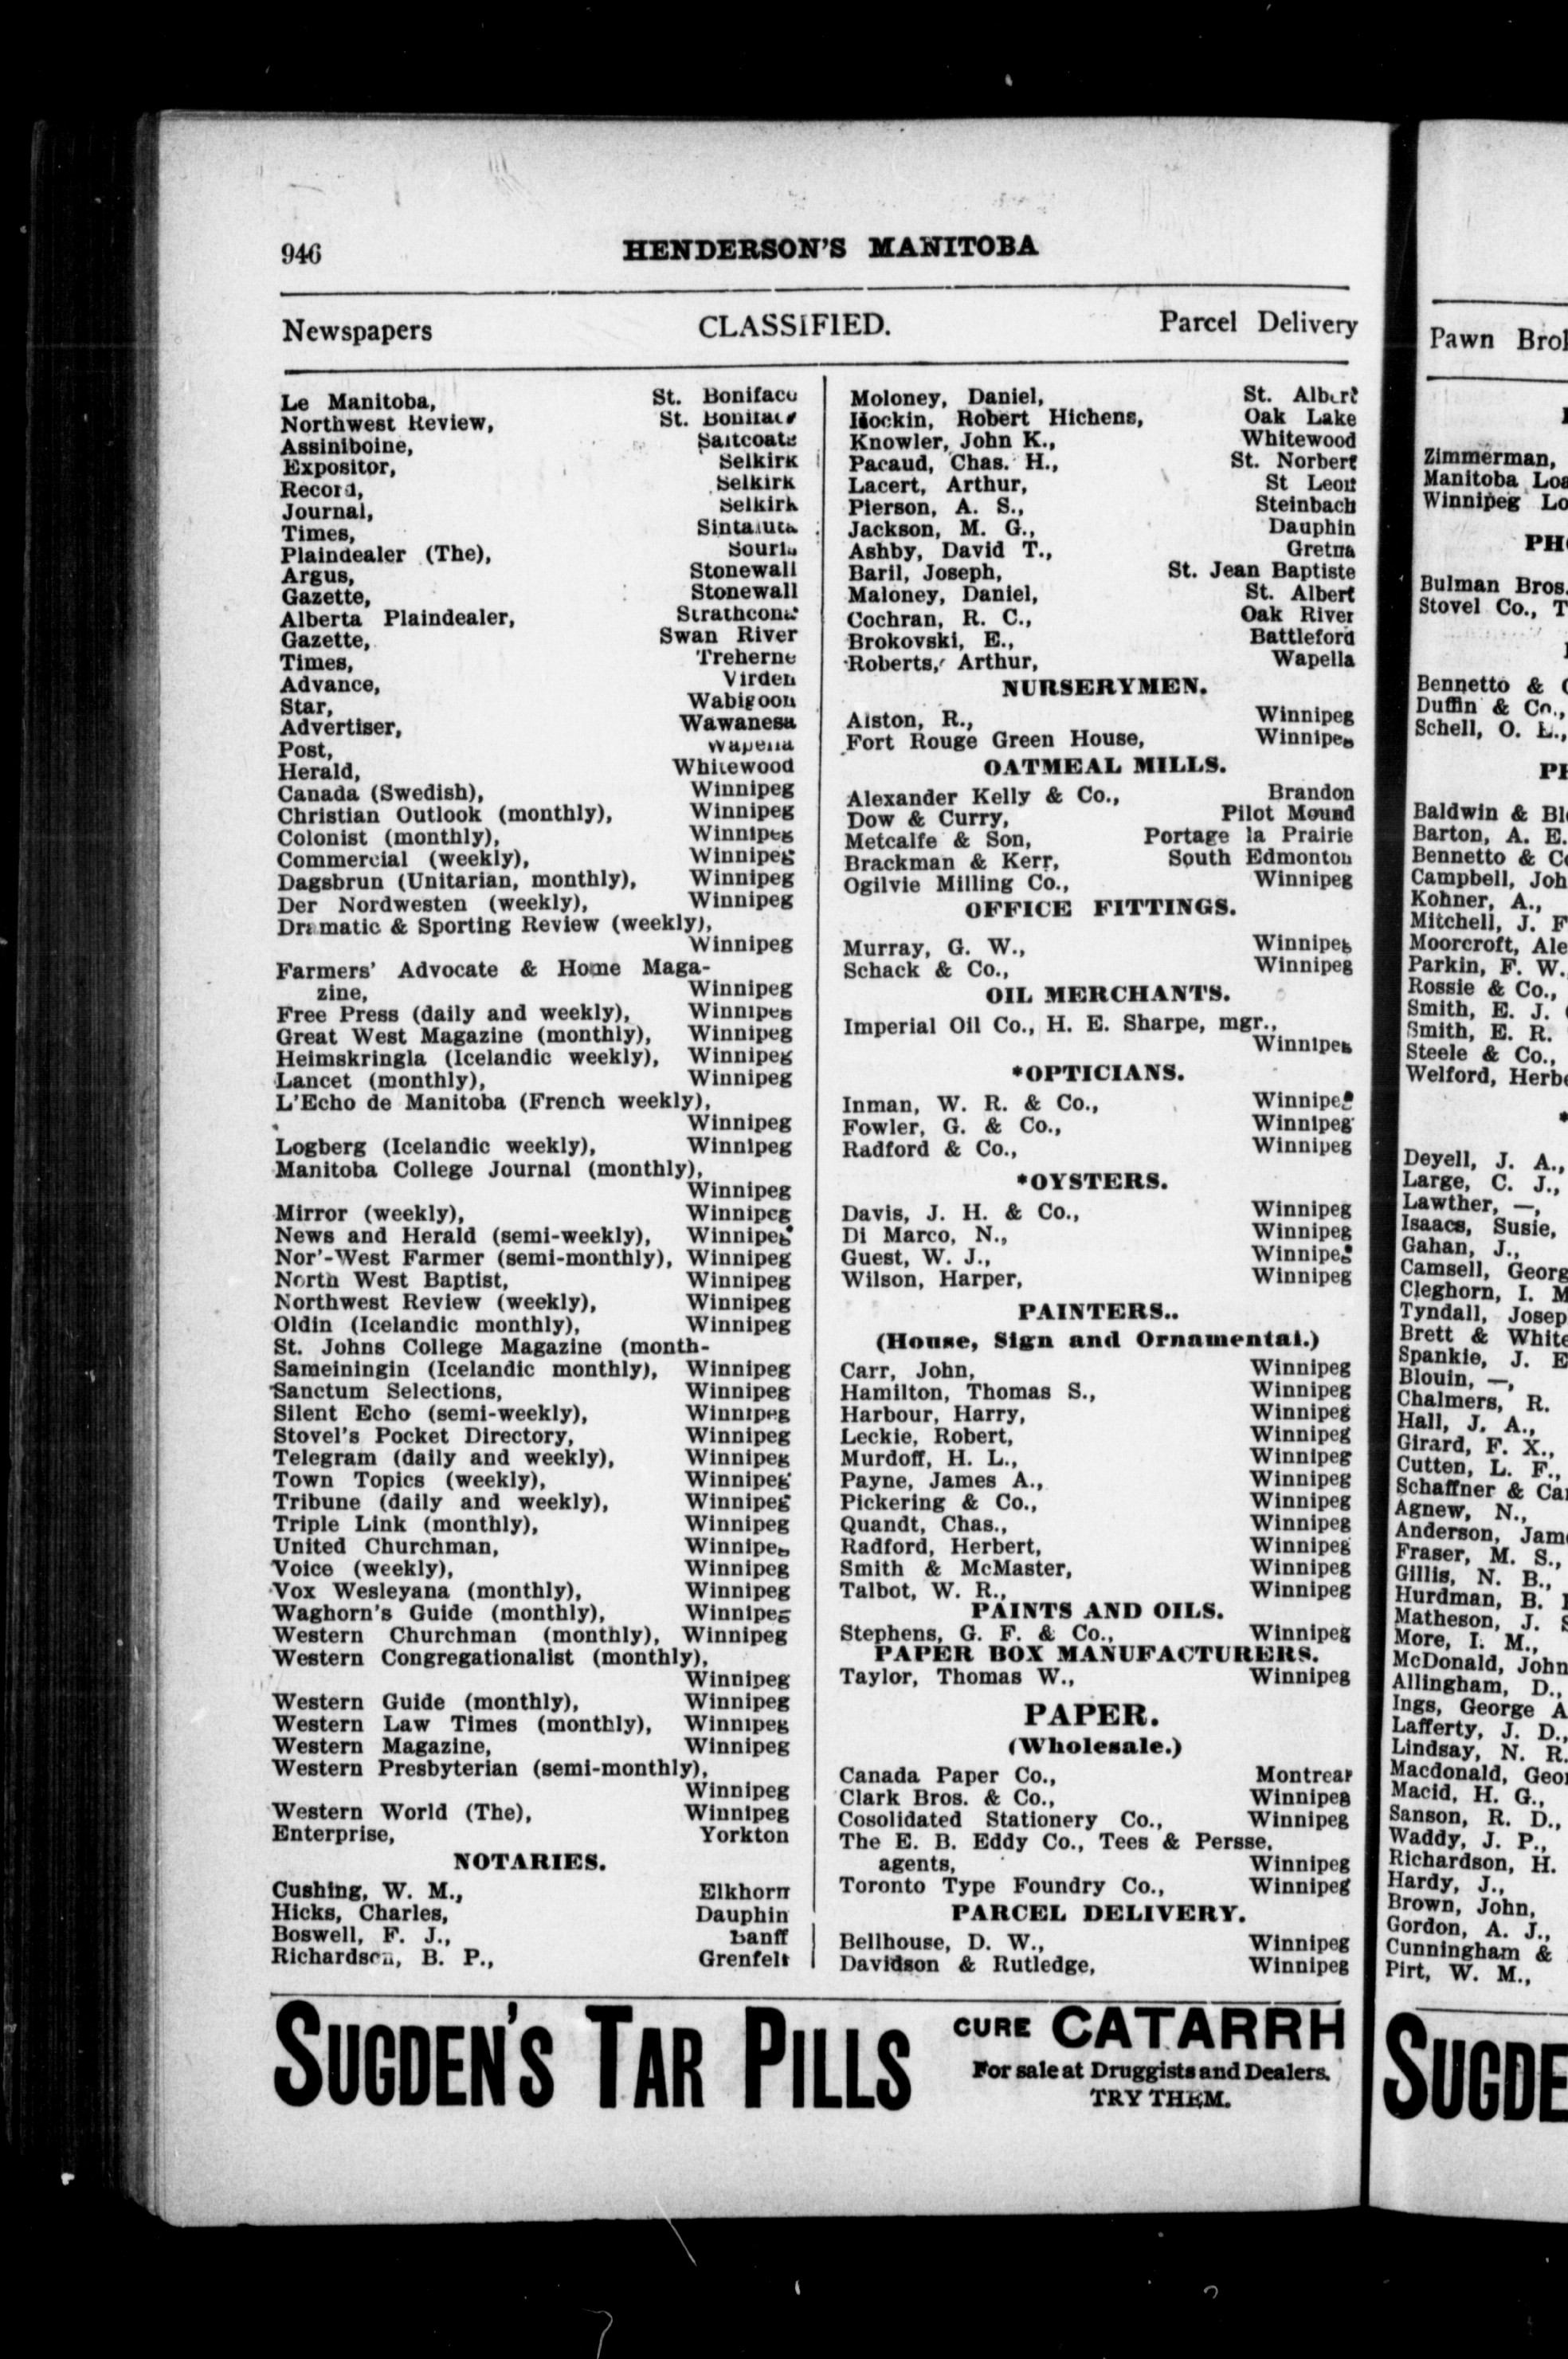 946 HENDERSON'S MANITOBA
Newspapers CLASSIFIED. Parcel Delivery
Le Manitoba, St. Boniface
Northwest Review, St. Boniface
Assiniboine, Saltcoats
Expositor, Selkirk
Record, Selkirk
Journal, Selkirk
Times, Sintaluta
Plaindealer (The), Souris
Argus, Stonewall
Gazette, Stonewall
Alberta Plaindealer, Strathcona
Gazette, Swan River
Times, Treherne
Advance, Virden
Star, Wabigoon
Advertiser, Wawanesa
Post, Wapella
Herald, Whitewood
Canada (Swedish), Winnipeg
Christian Outlook (monthly), Winnipeg
Colonist (monthly), Winnipeg
Commercial (weekly), Winnipeg
Dagsbrun (Unitarian, monthly), Winnipeg
Der Nordwesten (weekly), Winnipeg
Dramatic & Sporting Review (weekly),
Winnipeg
Farmers' Advocate & Home Maga-
zine, Winnipeg
Free Press (daily and weekly), Winnipeg
Great West Magazine (monthly), Winnipeg
Heimskringla (Icelandic weekly), Winnipeg
Lancet (monthly), Winnipeg
L'Echo de Manitoba (French weekly),
Winnipeg
Logberg (Icelandic weekly), Winnipeg
Manitoba College Journal (monthly),
Winnipeg
Mirror (weekly), Winnipeg
News and Herald (semi-weekly), Winnipeg
Nor'-West Farmer (semi-monthly), Winnipeg
North West Baptist, Winnipeg
Northwest Review (weekly), Winnipeg
Oldin (Icelandic monthly), Winnipeg
St. Johns College Magazine (month-
Sameiningin (Icelandic monthly), Winnipeg
Sanctum Selections, Winnipeg
Silent Echo (semi-weekly), Winnipeg
Stovel's Pocket Directory, Winnipeg
Telegram (daily and weekly), Winnipeg
Town Topics (weekly), Winnipeg
Tribune (daily and weekly), Winnipeg
Triple Link (monthly), Winnipeg
United Churchman, Winnipeg
Voice (weekly), Winnipeg
Vox Wesleyana (monthly), Winnipeg
Waghorn's Guide (monthly), Winnipeg
Western Churchman (monthly), Winnipeg
Western Congregationalist (monthly),
Winnipeg
Western Guide (monthly), Winnipeg
Western Law Times (monthly), Winnipeg
Western Magazine, Winnipeg
Western Presbyterian (semi-monthly),
Winnipeg
Western World (The), Winnipeg
Enterprise, Yorkton
NOTARIES.
Cushing, W. M., Elkhorn
Hicks, Charles, Dauphin
Boswell, F. J., Banff
Richardson, B. P., Grenfell
Moloney, Daniel, St. Albert
Hockin, Robert Hichens, Oak Lake
Knowler, John K., Whitewood
Pacaud, Chas. H., St. Norbert
Lacert, Arthur, St Leon
Pierson, A. S., Steinbach
Jackson, M. G., Dauphin
Ashby, David T., Gretna
Baril, Joseph, St. Jean Baptiste
Maloney, Daniel, St. Albert
Cochran, R. C., Oak River
Brokovski, E., Battleford
Roberts, Arthur, Wapella
NURSERYMEN.
Alston, R., Winnipeg
Fort Rouge Green House, Winnipeg
OATMEAL MILLS.
Alexander Kelly & Co., Brandon
Dow & Curry, Pilot Mound
Metcalfe & Son, Portage la Prairie
Brackman & Kerr, South Edmonton
Ogilvie Milling Co., Winnipeg
OFFICE FITTINGS.
Murray, G. W., Winnipeg
Schack & Co., Winnipeg
OIL MERCHANTS.
Imperial Oil Co., H. E. Sharpe, mgr.,
Winnipeg
*OPTICIANS.
Inman, W. R. & Co., Winnipeg
Fowler, G. & Co., Winnipeg
Radford & Co., Winnipeg
*OYSTERS.
Davis, J. H. & Co., Winnipeg
Di Marco, N., Winnipeg
Guest, W. J., Winnipeg
Wilson, Harper, Winnipeg
PAINTERS..
(House, Sign and Ornamental.)
Carr, John, Winnipeg
Hamilton, Thomas S., Winnipeg
Harbour, Harry, Winnipeg
Leckie, Robert, Winnipeg
Murdoff, H. L., Winnipeg
Payne, James A., Winnipeg
Pickering & Co., Winnipeg
Quandt, Chas., Winnipeg
Radford, Herbert, Winnipeg
Smith & McMaster, Winnipeg
Talbot, W. R., Winnipeg
PAINTS AND OILS.
Stephens, G. F. & Co., Winnipeg
PAPER BOX MANUFACTURERS.
Taylor, Thomas W., Winnipeg
PAPER.
(Wholesale.)
Canada Paper Co., Montreal
Clark Bros. & Co., Winnipeg
Cosolidated Stationery Co., Winnipeg
The E. B. Eddy Co., Tees & Persse,
agents, Winnipeg
Toronto Type Foundry Co., Winnipeg
PARCEL DELIVERY.
Bellhouse, D. W., Winnipeg
Davidson & Rutledge, Winnipeg
SUGDEN'S TAR PILLS CURE CATARRH
For sale at Druggists and Dealers.
TRY THEM.
Pawn
Zimmerman,
Manitoba
Winnipeg
Bulman Bros.
Stovel Co.,
Bennetto &
Duffin & Co.,
Schell, O. E.,
Baldwin &
Barton, A. E.
Bennetto &
Campbell,
Kohner, A.,
Mitchell, J.
Moorcroft,
Parkin, F. W.
Rossie & Co.,
Smith, E. J.
Smith, E. R.
Steele & Co.,
Welford,
*
Deyell, J. A.,
Large, C. J.,
Lawther, —,
Isaacs, Susie,
Gahan, J.,
Camsell,
Cleghorn, I.
Tyndall,
Brett &
Spankie, J.
Blouin, —,
Chalmers, R.
Hall, J. A.,
Girard, F. X.,
Cutten, L. F.,
Schaffner &
Agnew, N.,
Anderson,
Fraser, M. S.,
Gillis, N. B.,
Hurdman, B.
Matheson, J.
More, I. M.,
McDonald, John
Allingham, D.,
Ings, George
Lafferty, J. D.,
Lindsay, N. R.
Macdonald,
Macid, H. G.,
Sanson, R. D.,
Waddy, J. P.,
Richardson, H.
Hardy, J.,
Brown, John,
Gordon, A. J.,
Cunningham &
Pirt, W. M.,